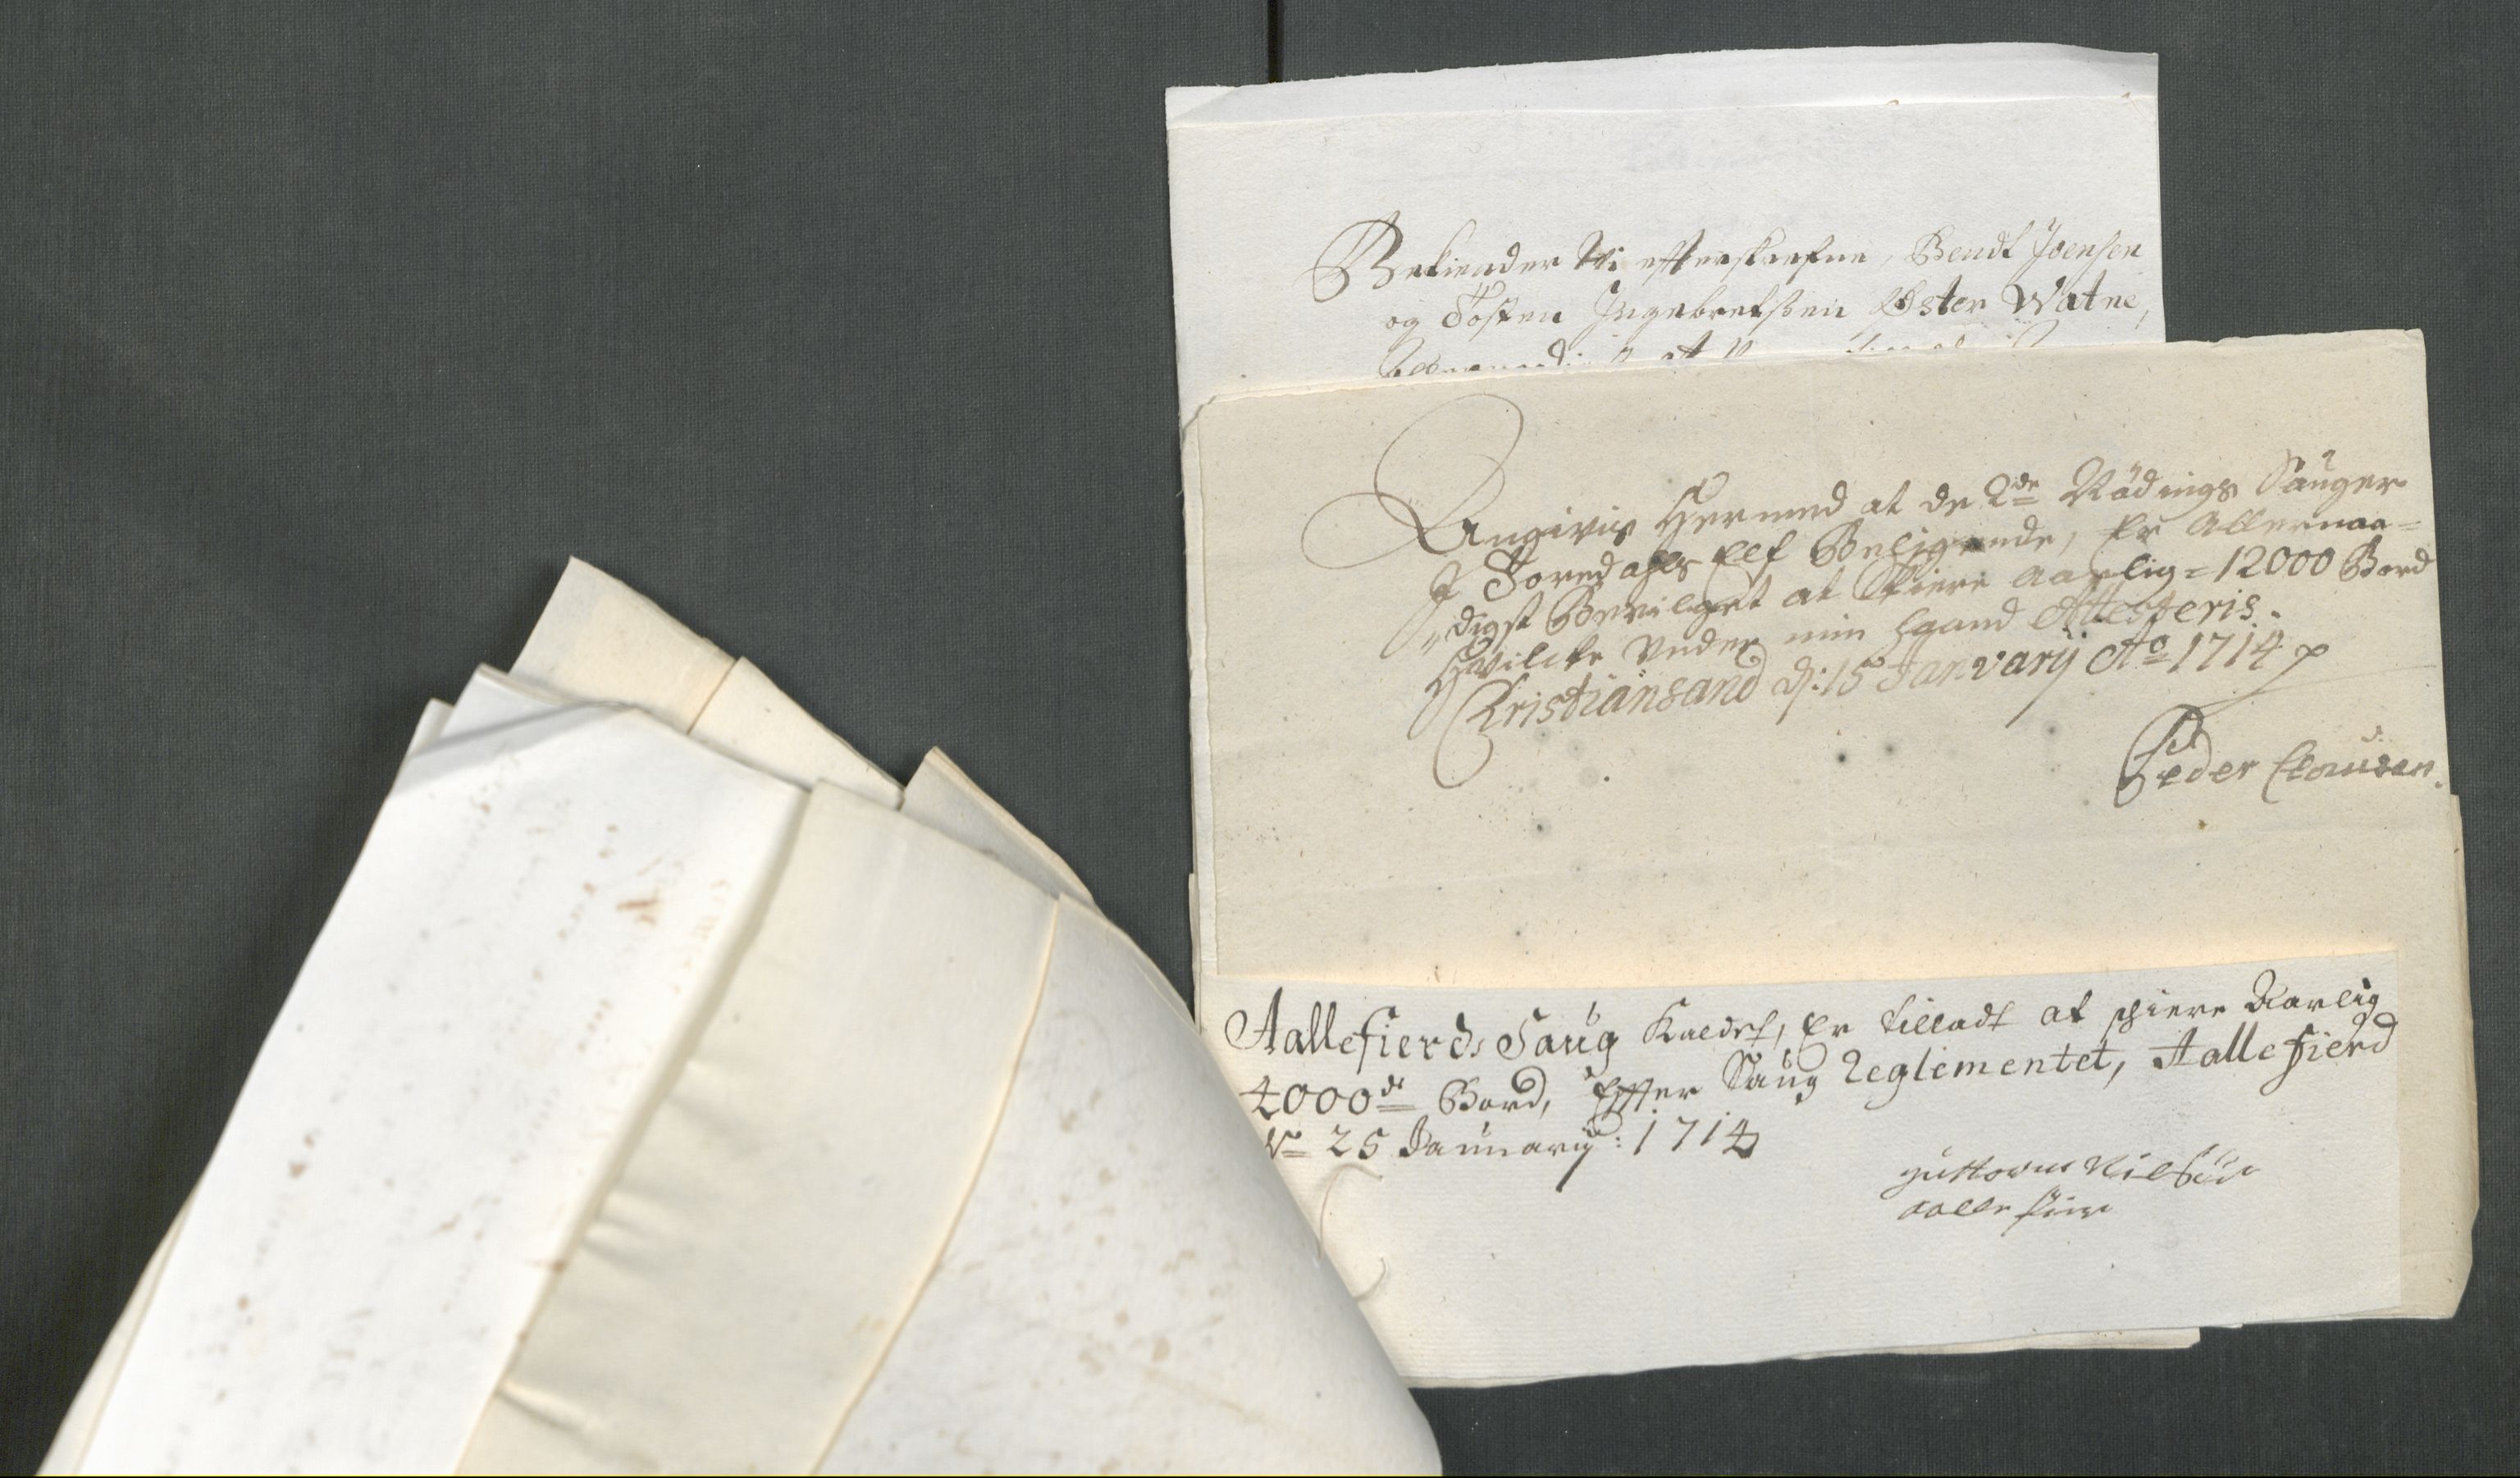 Bekiender Wi efterskrefne, Bendt Joensen
og Tosten Ingebretsen Øster Watne,
Angivis Hermed at de 2de Rödings Sauger
J Toredahls Elf Beligende, Er Allernaa=
digst Bevilget at Skiere Aarlig = 12000 Bord
Hvilcke Under min Haand Attesteris.
Christiansand d: 15 Januarij Ao 1714
Peder Clousen.
Aallefierds Saug Kaldet, Er tilladt at schiere Aarlig
4000de Bord, Efter Saug Reglementet, Aallefierd
25 Januarij: 1714
guttorm Nilsøn
aalle fier